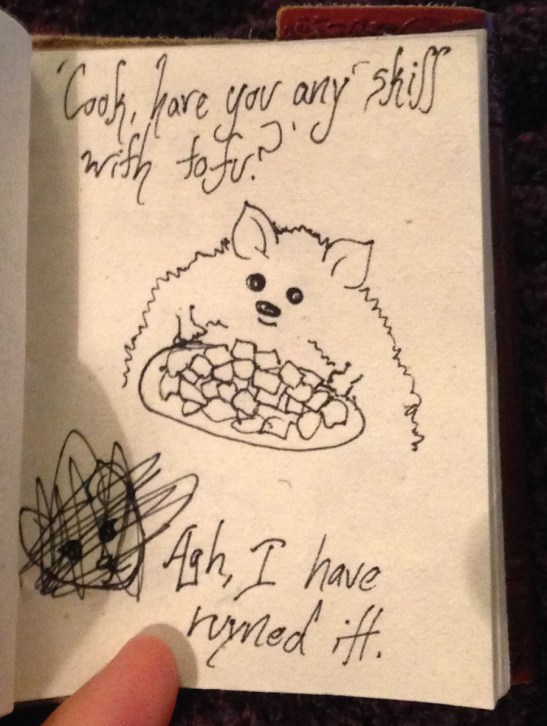 'Cook, have you any skiff
with tofu?'
Agh, I have
ruyned iff.